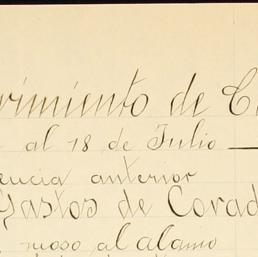 vimiento de C
al 18 de Julio
encia anterior
Gastos de Corad
al alamo